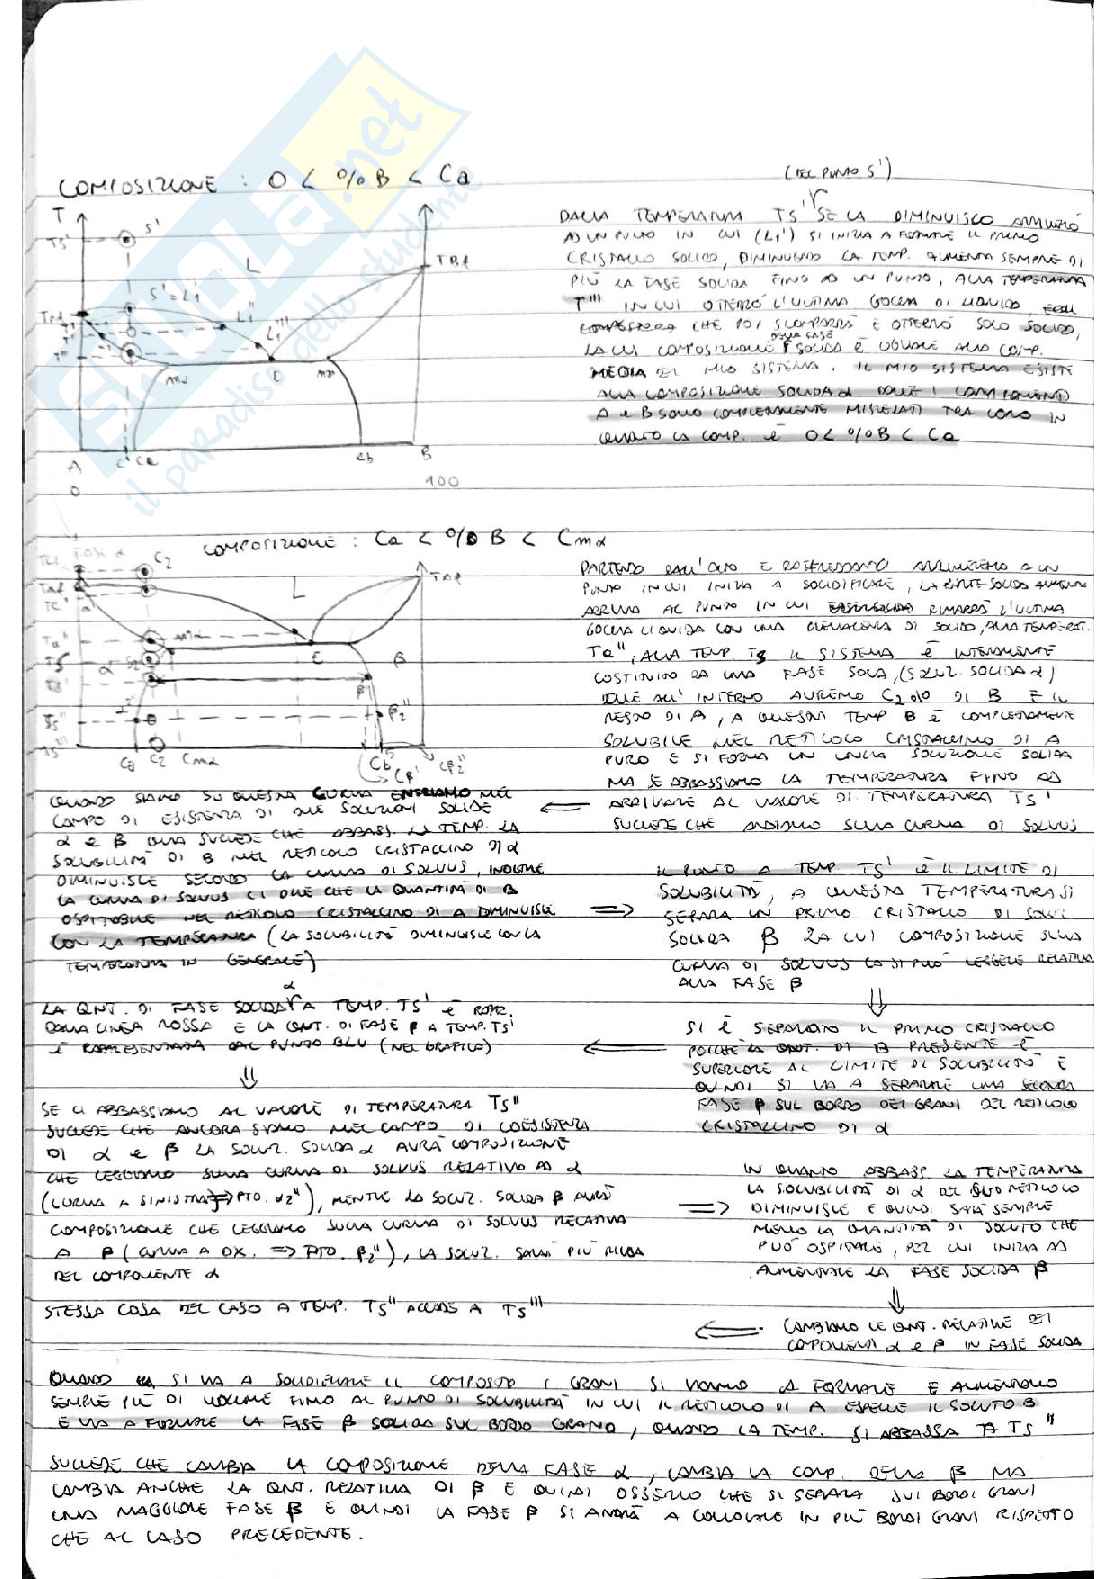 COMPOSIZIONE : 0 < % B < Ca
(DEL PUNTO S')
T
TS'
S'
L
S'=L1'
TAf
TBf
L1''
L1'''
T'''
mα
E
A
C'
Ca
Cb
B
0
100
DALLA TEMPERATURA TS' SE LA DIMINUISCO ARRIVERÒ
AD UN PUNTO IN CUI (L1') SI INIZIA A FORMARE IL PRIMO
CRISTALLO SOLIDO, DIMINUENDO LA TEMP. AUMENTA SEMPRE DI
PIÙ LA FASE SOLIDA FINO AD UN PUNTO, ALLA TEMPERATURA
T''' IN CUI OTTERRÒ L'ULTIMA GOCCIA DI LIQUIDO
CHE POI SCOMPARIRÀ E OTTERRÒ SOLO SOLIDO,
DELLA FASE
LA CUI COMPOSIZIONE SOLIDA È UGUALE ALLA COMP.
MEDIA DEL MIO SISTEMA. IL MIO SISTEMA ESISTE
ALLA COMPOSIZIONE SOLIDA α DOVE I COMPONENTI
A e B SONO COMPLETAMENTE MISCELATI TRA LORO IN
QUANTO LA COMP. È 0 < % B < Ca
COMPOSIZIONE : Ca < % B < Cmα
C2
TAf
TBf
TC'
L
Ta''
E
B
TS'
TS''
β2''
TS'''
Ca
C2
Cmα
Cb
Cβ'
Cβ2''
PARTENDO DALL'ALTO E RAFFREDDANDO ARRIVEREMO A UN
PUNTO IN CUI INIZIA A SOLIDIFICARE, LA PARTE SOLIDA AUMENTA
ARRIVA AL PUNTO IN CUI RIMARRÀ L'ULTIMA
GOCCIA LIQUIDA CON UNA DI SOLIDO, ALLA TEMPERAT.
Ta'', ALLA TEMP TS IL SISTEMA È INTERAMENTE
COSTITUITO DA UNA FASE SOLA, (SOLUZ. SOLIDA α)
DOVE ALL'INTERNO AVREMO C2 % DI B E IL
RESTO DI A, A QUESTA TEMP B È COMPLETAMENTE
SOLUBILE NEL RETICOLO CRISTALLINO DI A
PURO E SI FORMA UN UNICA SOLUZIONE SOLIDA
MA SE ABBASSIAMO LA TEMPERATURA FINO AD
ARRIVARE AL VALORE DI TEMPERATURA TS'
SUCCEDE CHE ANDIAMO SULLA CURVA DI SOLVUS
QUANDO SIAMO SU QUESTA CURVA ENTRIAMO NEL
CAMPO DI ESISTENZA DI DUE SOLUZIONI SOLIDE
α e β SUCCEDE CHE ABBASS. LA TEMP. LA
SOLUBILITÀ DI B NEL RETICOLO CRISTALLINO DI α
DIMINUISCE SECONDO LA CURVA DI SOLVUS, INOLTRE
LA CURVA DI SOLVUS CI DICE CHE LA QUANTITÀ DI B
OSPITABILE NEL RETICOLO CRISTALLINO DI A DIMINUISCE
CON LA TEMPERATURA (LA SOLUBILITÀ DIMINUISCE CON LA
TEMPERATURA IN GENERALE)
IL PUNTO A TEMP. TS' È IL LIMITE DI
SOLUBILITÀ, A QUESTA TEMPERATURA SI
SEPARA UN PRIMO CRISTALLO DI SOLUZ.
SOLIDA β LA CUI COMPOSIZIONE SULLA
CURVA DI SOLVUS LA SI PUÒ LEGGERE RELATIVA
ALLA FASE β
α
LA QNT. DI FASE SOLIDA A TEMP. TS' È RAPPR.
DALLA LINEA ROSSA E LA QNT. DI FASE β A TEMP. TS'
È RAPPRESENTATA DAL PUNTO BLU (NEL GRAFICO)
SI È SEPARATO IL PRIMO CRISTALLO
POICHÈ LA QNT. DI B PRESENTE È
SUPERIORE AL LIMITE DI SOLUBILITÀ E
QUINDI SI VA A SEPARARE UNA SECONDA
FASE β SUL BORDO DEI GRANI DEL RETICOLO
CRISTALLINO DI α
SE CI ABBASSIAMO AL VALORE DI TEMPERATURA TS''
SUCCEDE CHE ANCORA SIAMO NEL CAMPO DI COESISTENZA
DI α e β LA SOLUZ. SOLIDA α AVRÀ COMPOSIZIONE
CHE LEGGIAMO SULLA CURVA DI SOLVUS RELATIVO AD α
(CURVA A SINISTRA => PTO. α2''), MENTRE LA SOLUZ. SOLIDA β AVRÀ
COMPOSIZIONE CHE LEGGIAMO SULLA CURVA DI SOLVUS RELATIVA
A β (CURVA A DX. => PTO. β2''), LA SOLUZ. SARÀ PIÙ RICCA
DEL COMPONENTE α
IN QUANTO ABBASS. LA TEMPERATURA
LA SOLUBILITÀ DI α DEL SUO RETICOLO
DIMINUISCE E QUINDI SARÀ SEMPRE
MENO LA QUANTITÀ DI SOLUTO CHE
PUÒ OSPITARE, PER CUI INIZIA AD
AUMENTARE LA FASE SOLIDA β
STESSA COSA DEL CASO A TEMP. TS'' ACCADE A TS'''
CAMBIANO LE QNT. RELATIVE DEI
COMPONENTI α e β IN FASE SOLIDA
QUANDO SI VA A SOLIDIFICARE IL COMPOSTO I GRANI SI VANNO A FORMARE E AUMENTANO
SEMPRE PIÙ DI VOLUME FINO AL PUNTO DI SOLUBILITÀ IN CUI IL RETICOLO DI A ESPELLE IL SOLUTO B
E VA A FORMARE LA FASE β SOLIDA SUL BORDO GRANO, QUANDO LA TEMP. SI ABBASSA A TS''
SUCCEDE CHE CAMBIA LA COMPOSIZIONE DELLA FASE α, CAMBIA LA COMP. DELLA β MA
CAMBIA ANCHE LA QNT. RELATIVA DI β E QUINDI OSSERVO CHE SI SEPARA SUI BORDI GRANI
UNA MAGGIORE FASE β E QUINDI LA FASE β SI ANDRÀ A COLLOCARE IN PIÙ BORDI GRANI RISPETTO
CHE AL CASO PRECEDENTE.
SKUOLA.net
il paradiso dello studente